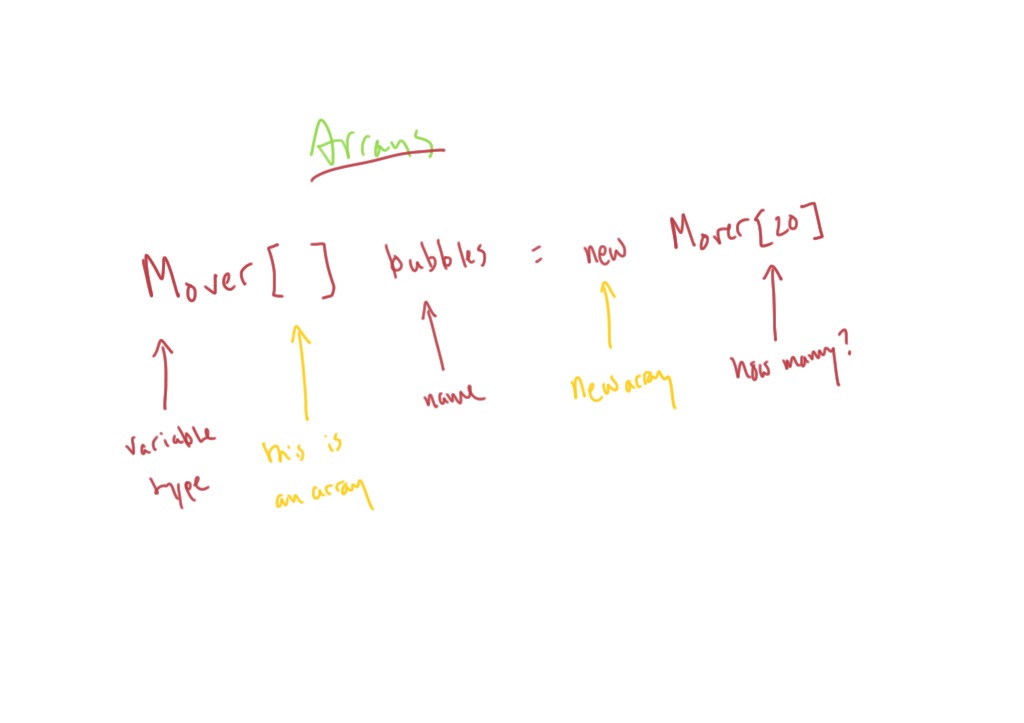 Arrays
Mover [ ] bubbles = new Mover[20]
variable
type
this is
an array
name
New array
how many?